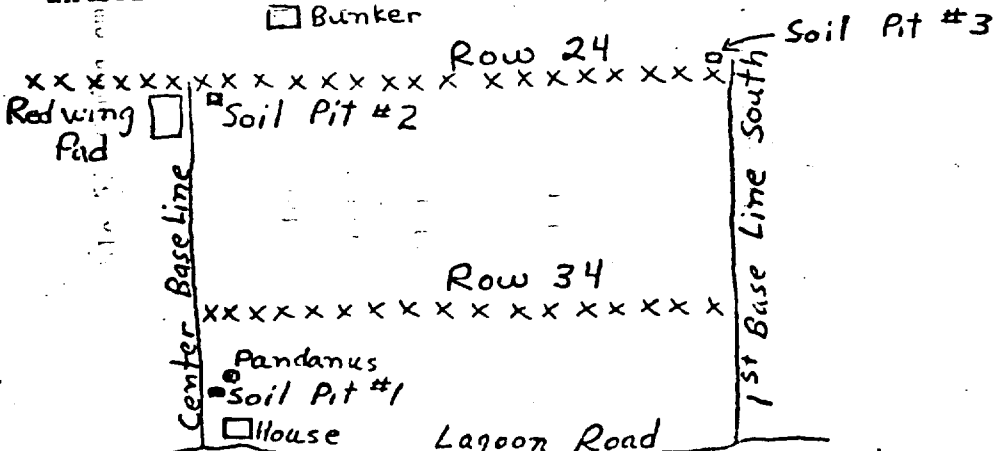 Bunker
Soil Pit #3
Row 24
x x x x x x x x x x x x x x x x x x x x x x
Redwing
Pad
Soil Pit #2
Center Baseline
1st Base Line South
Row 34
x x x x x x x x x x x x x x x x x x
Pandanus
Soil Pit #1
House
Lagoon Road